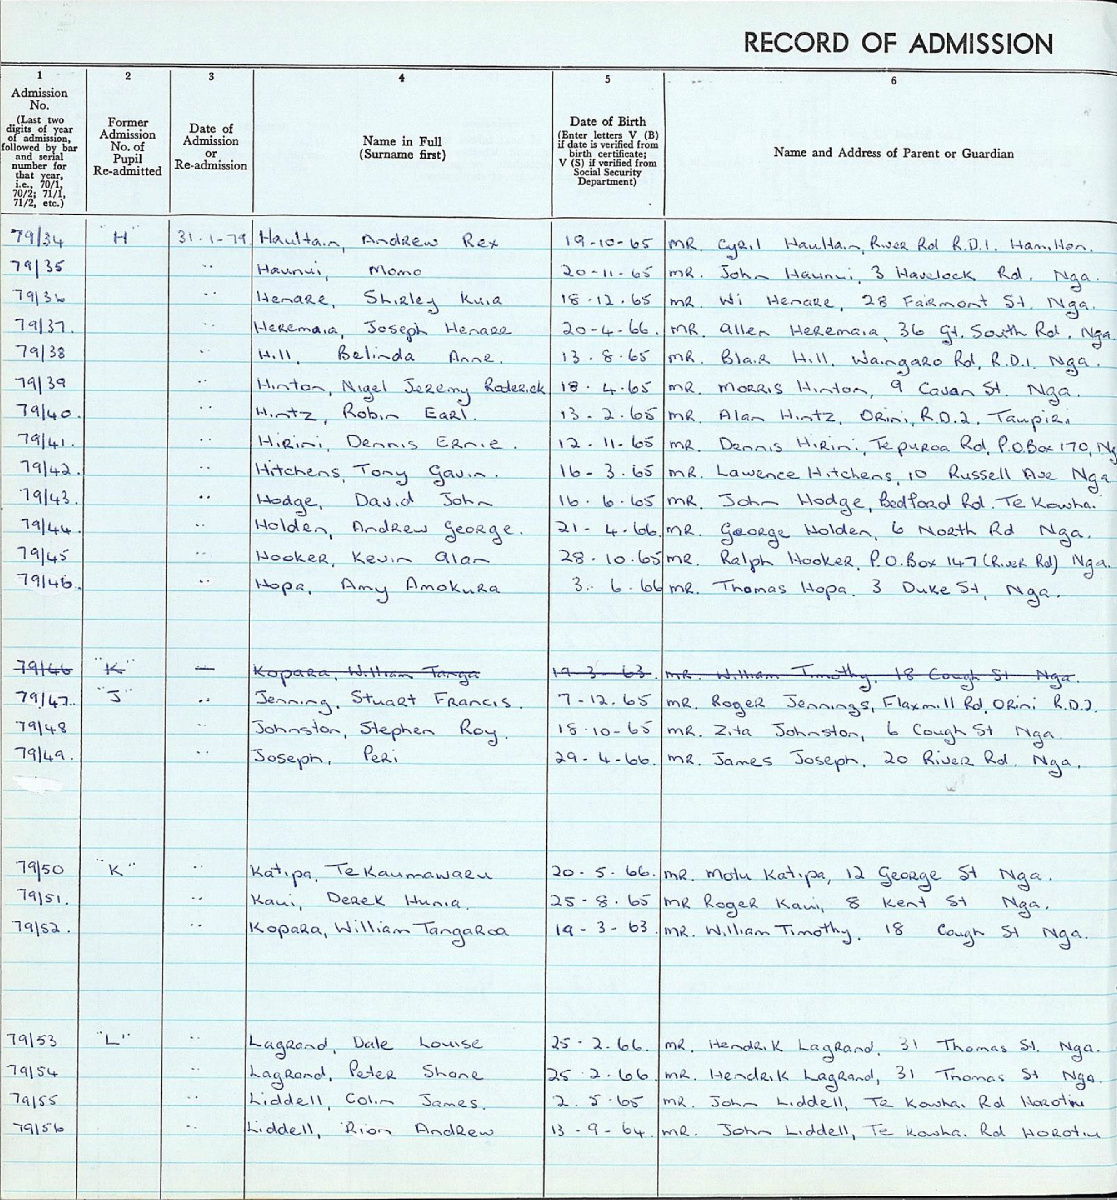 RECORD OF ADMISSION
1 2 3 4 5 6
Admission No. (Last two digits of year of admission, followed by bar and serial number for that year, i.e., 70/1, 70/2; 71/1, 71/2, etc.)
Former Admission No. of Pupil Re-admitted
Date of Admission or Re-admission
Name in Full (Surname first)
Date of Birth (Enter letters V (B) if date is verified from birth certificate; V (S) if verified from Social Security Department)
Name and Address of Parent or Guardian
79/34 "H" 31-1-79 Haultain, Andrew Rex 19-10-65 MR. Cyril Haultain, River Rd R.D.1. Hamilton.
79/35 " Haunui, Momo 20-11-65 MR. John Haunui, 3 Havelock Rd. Nga.
79/36 " Henare, Shirley Kuia 18.12.65 MR. Wi Henare, 28 Fairmont St. Nga.
79/37. " Heremaia, Joseph Henare 20-4-66. MR. Allen Heremaia, 36 Gt. South Rd. Nga.
79/38 " Hill, Belinda Anne. 13.8.65 MR. Blair Hill. Waingaro Rd, R.D.1. Nga.
79/39 " Hinton, Nigel Jeremy Roderick 18.4.65 MR. Morris Hinton, 9 Cavan St. Nga.
79/40. " Hintz, Robin Earl. 13-2.65 MR. Alan Hintz, Orini, R.D.2, Taupiri
79/41. " Hirini, Dennis Ernie. 12-11-65 MR. Dennis Hirini, Te puroa Rd, P.O.Box 170, Ng
79/42. " Hitchens, Tony Gavin. 16-3.65 MR. Lawence Hitchens, 10 Russell Ave Nga
79/43. " Hodge, David John 16.6.65 MR. John Hodge, Bedford Rd. Te Kowha.
79/44. " Holden, Andrew George. 21-4.66. MR. George Holden, 6 North Rd Nga.
79/45 " Hooker, Kevin Alan 28.10.65 MR. Ralph Hooker, P.O.Box 147 (River Rd) Nga.
79/46. " Hopa, Amy Amokura 3.6.66 MR. Thomas Hopa. 3 Duke St, Nga.
79/46 "K" — Kopara, William Tanga 19-3-63. MR. William Timothy. 18 Cough St Nga.
79/47. "J" " Jenning, Stuart Francis. 7-12.65 MR. Roger Jennings, Flaxmill Rd, Orini R.D.2.
79/48 " Johnston, Stephen Roy. 18.10-65 MR. Zita Johnston, 6 Cough St Nga.
79/49. " Joseph, Peri 29-4-66. MR. James Joseph, 20 River Rd. Nga.
79/50 "K" " Katipa, Te Kaumawaru 20-5-66. MR. Motu Katipa, 12 George St Nga.
79/51. " Kaui, Derek Hunia. 25-8.65 MR Roger Kaui, 8 Kent St Nga.
79/52. " Kopara, William Tangaroa 19-3-63. MR. William Timothy. 18 Cough St Nga.
79/53 "L" " Lagrand, Dale Louise 25.2.66. MR. Hendrik Lagrand. 31 Thomas St. Nga.
79/54 " Lagrand, Peter Shane 25.2.66. MR. Hendrik Lagrand, 31 Thomas St Nga.
79/55 " Liddell, Colin James. 2.5.65 MR. John Liddell, Te Kowha. Rd Horotiu
79/56 " Liddell, Rion Andrew 13-9-64. MR. John Liddell, Te Kowha. Rd Horotiu